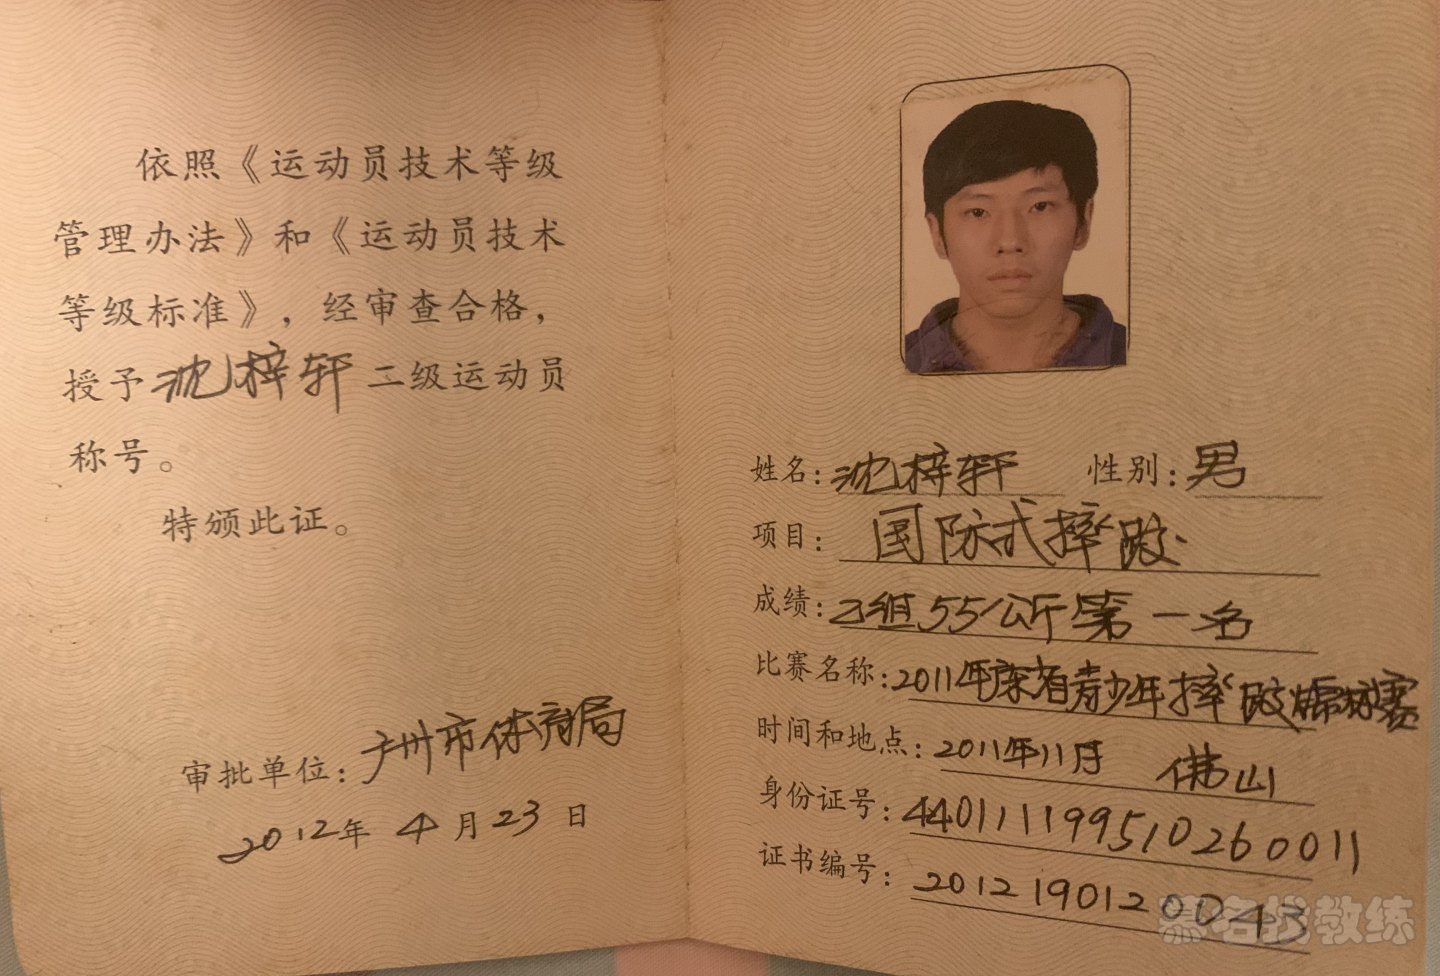 依照《运动员技术等级
管理办法》和《运动员技术
等级标准》，经审查合格，
授予沈梓轩二级运动员
称号。
特颁此证。
审批单位：广州市体育局
2012年4月23日
姓名：沈梓轩 性别：男
项目：国际式摔跤
成绩：乙组55公斤第一名
比赛名称：2011年广东省青少年摔跤锦标赛
时间和地点：2011年11月 佛山
身份证号：440111199510260011
证书编号：2012190120043
慕名找教练